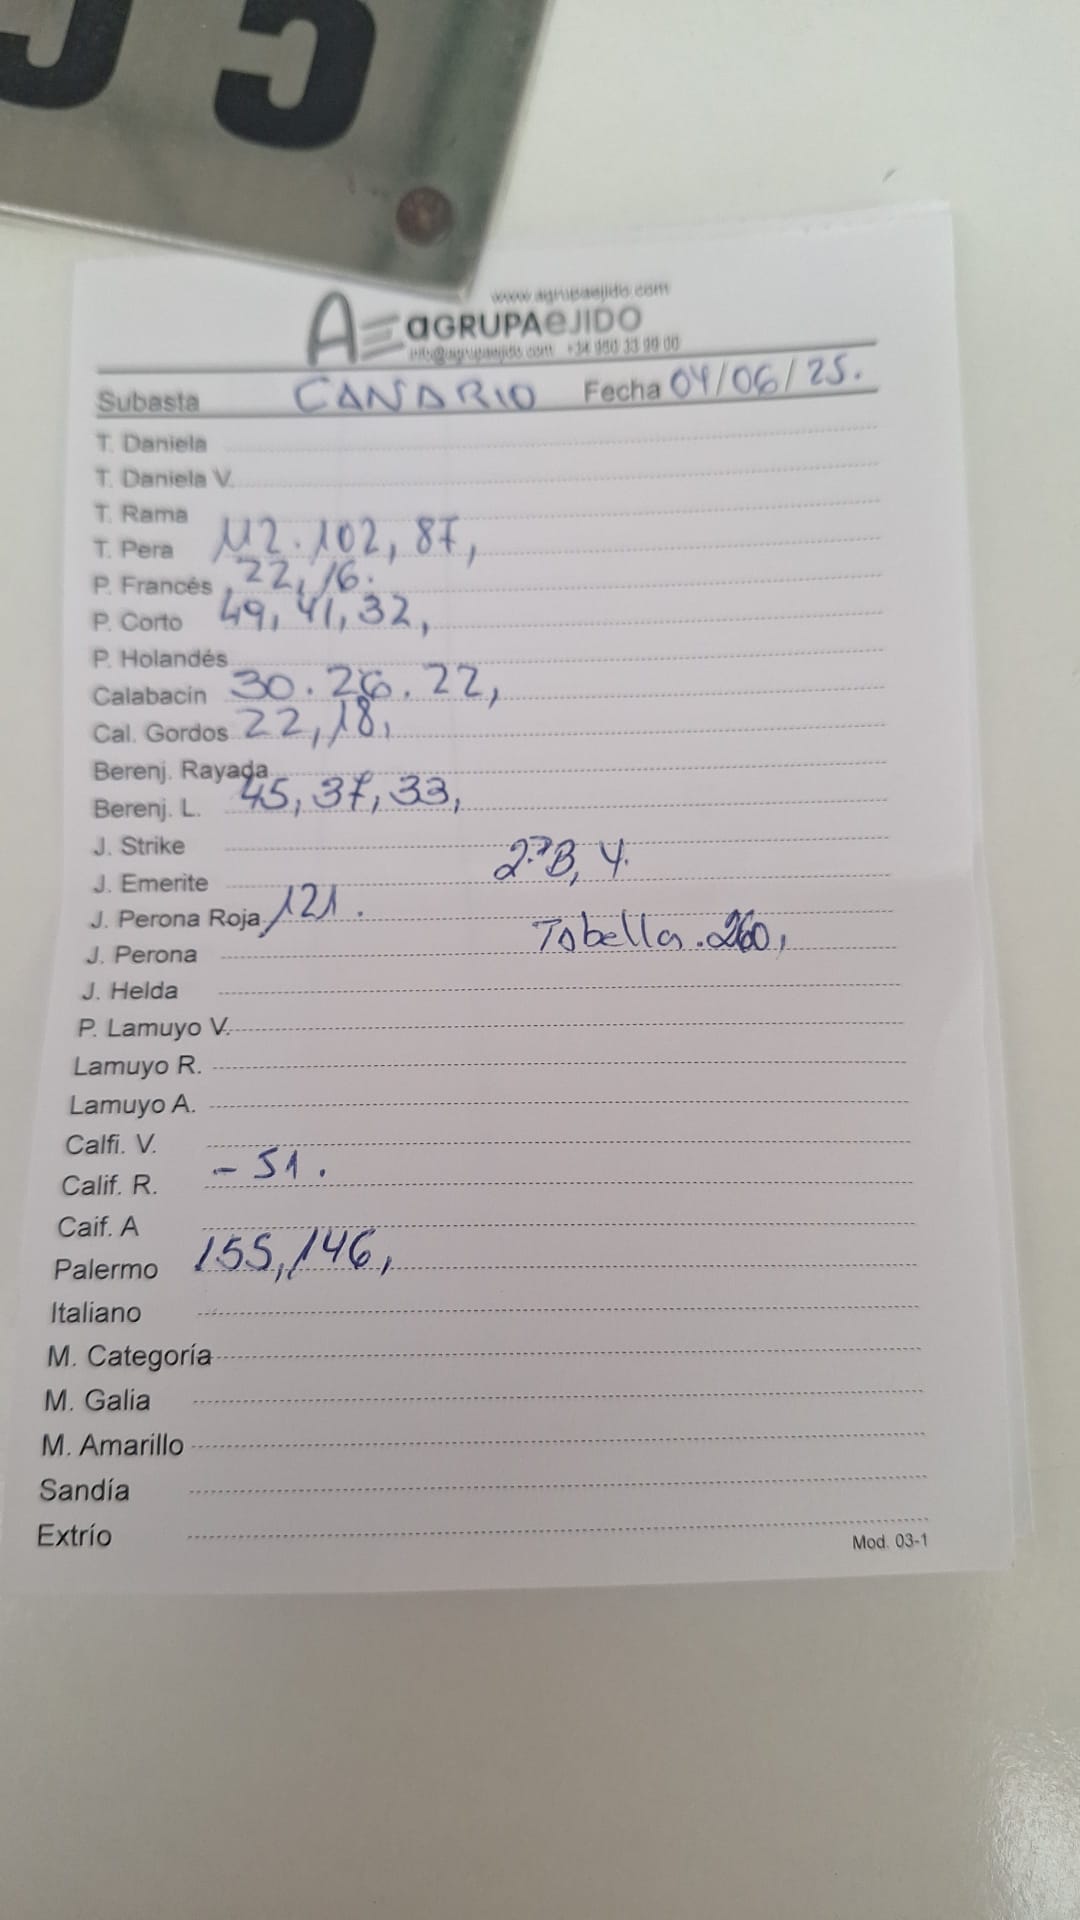 55
www.agrupaejido.com
AE AGRUPAEJIDO
info@agrupaejido.com +34 950 33 99 00
Subasta CANARIO Fecha 04/06/25.
T. Daniela
T. Daniela V.
T. Rama
T. Pera 112.102, 87,
P. Francés, 22, 16.
P. Corto 49, 41, 32,
P. Holandés
Calabacin 30.26.22,
Cal. Gordos 22, 18,
Berenj. Rayada
Berenj. L. 45, 37, 33,
J. Strike
2ªB, 4.
J. Emerite
J. Perona Roja 121.
Tabella.260,
J. Perona
J. Helda
P. Lamuyo V.
Lamuyo R.
Lamuyo A.
Calfi. V.
Calif. R. - 51.
Caif. A
Palermo 155, 146,
Italiano
M. Categoría
M. Galia
M. Amarillo
Sandía
Extrío
Mod. 03-1